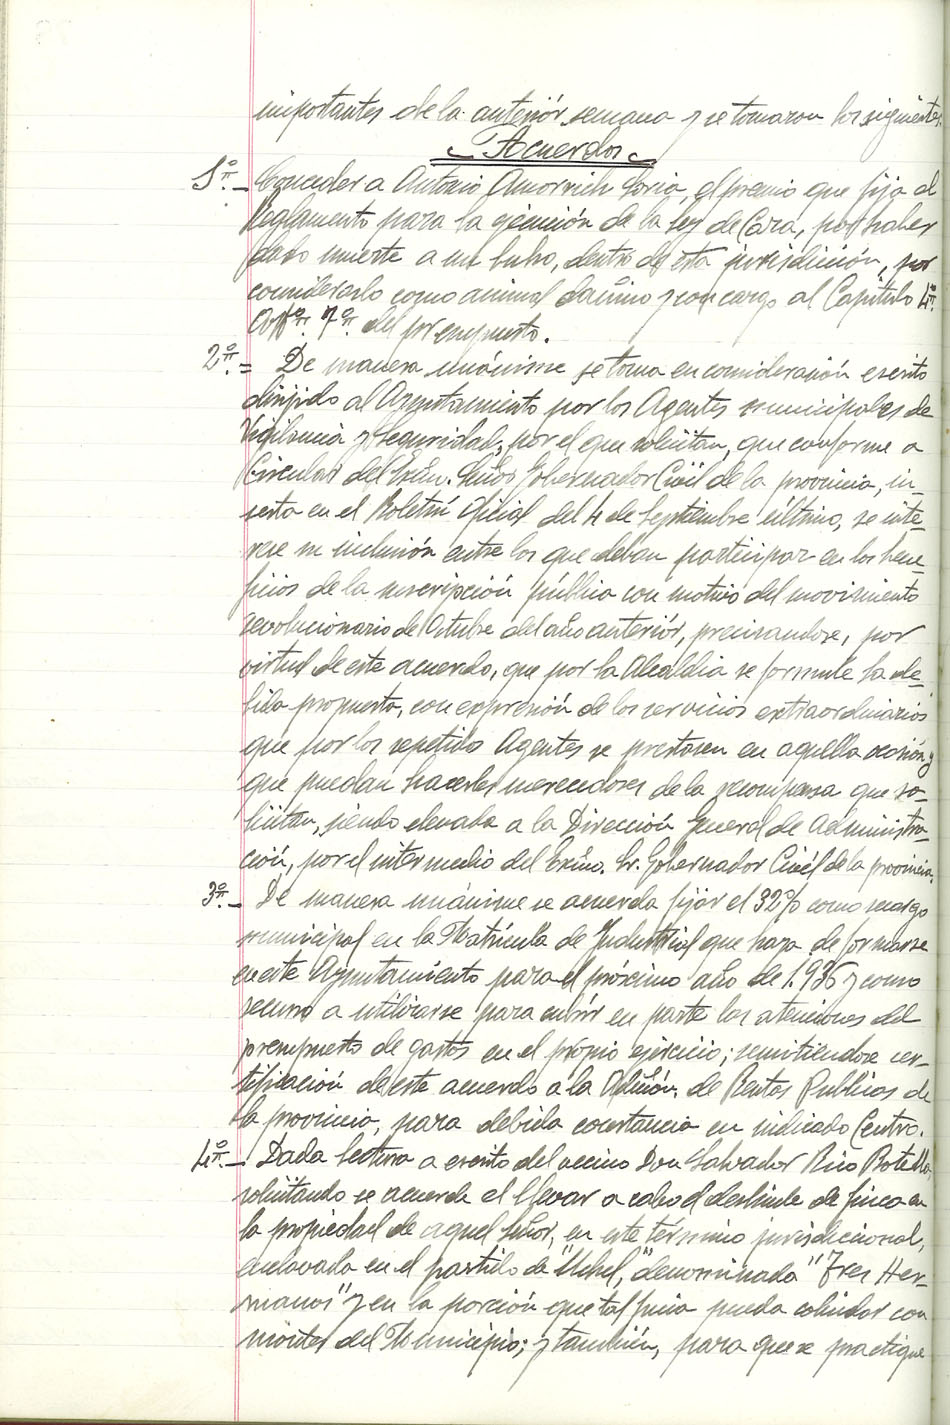 importantes de la anteriór semana y se tomaron los siguientes
Acuerdos
1º.- Conceder a Antonio Amorrich Soria, el premio que fija el
Reglamento para la ejecución de la Ley de Caza, por haber
dado muerte a un buho, dentro de esta jurisdicción, por
considerarlo como animal dañino y con cargo al Capitulo 4º.
Artº. 7º. del presupuesto.
2º.= De manera unánime se toma en consideración escrito
dirijido al Ayuntamiento por los Agentes municipales de
Vigilancia y Seguridad, por el que solicitan, que conforme a
Circular del Excmo. Señor Gobernador Civil de la provincia, in-
serta en el Boletín Oficial del 4 de Septiembre último, se inte-
rese su inclusión entre los que deban participar en los bene-
ficios de la suscripción pública con motivo del movimiento
revolucionario de Octubre del año anteriór, precisandose, por
virtud de este acuerdo, que por la Alcaldia se formule la de-
bida propuesta, con expresión de los servicios extraordinarios
que por los repetidos Agentes se prestasen en aquella ocasión y
que puedan hacerles merecedores de la recompensa que so-
licitan, siendo elevada a la Dirección General de Administra-
ción, por el intermedio del Excmo. Sr. Gobernador Civil de la provincia.
3º.- De manera unánime se acuerda fijar el 32% como recargo
municipal en la Matrícula de Industrial que haya de formarse
en este Ayuntamiento para el próximo año de 1.936 y como
recurso a utilizarse para cubrir en parte las atenciones del
presupuesto de gastos en el própio ejercicio; remitiendose cer-
tificación de este acuerdo a la Admón. de Rentas Publicas de
la provincia, para debida constancia en indicado Centro.
4º.- Dada lectura a escrito del vecino Don Salvador Rico Botella,
solicitando se acuerde el llevar a cabo el deslinde de finca en
la propiedad de aquel Señor, en este término jurisdicional,
enclavada en el partido de "Uchel," denominada "Tres Her-
manos" y en la porción que tal finca pueda colindar con
móntes del Municipio; y tambien, para que se practique